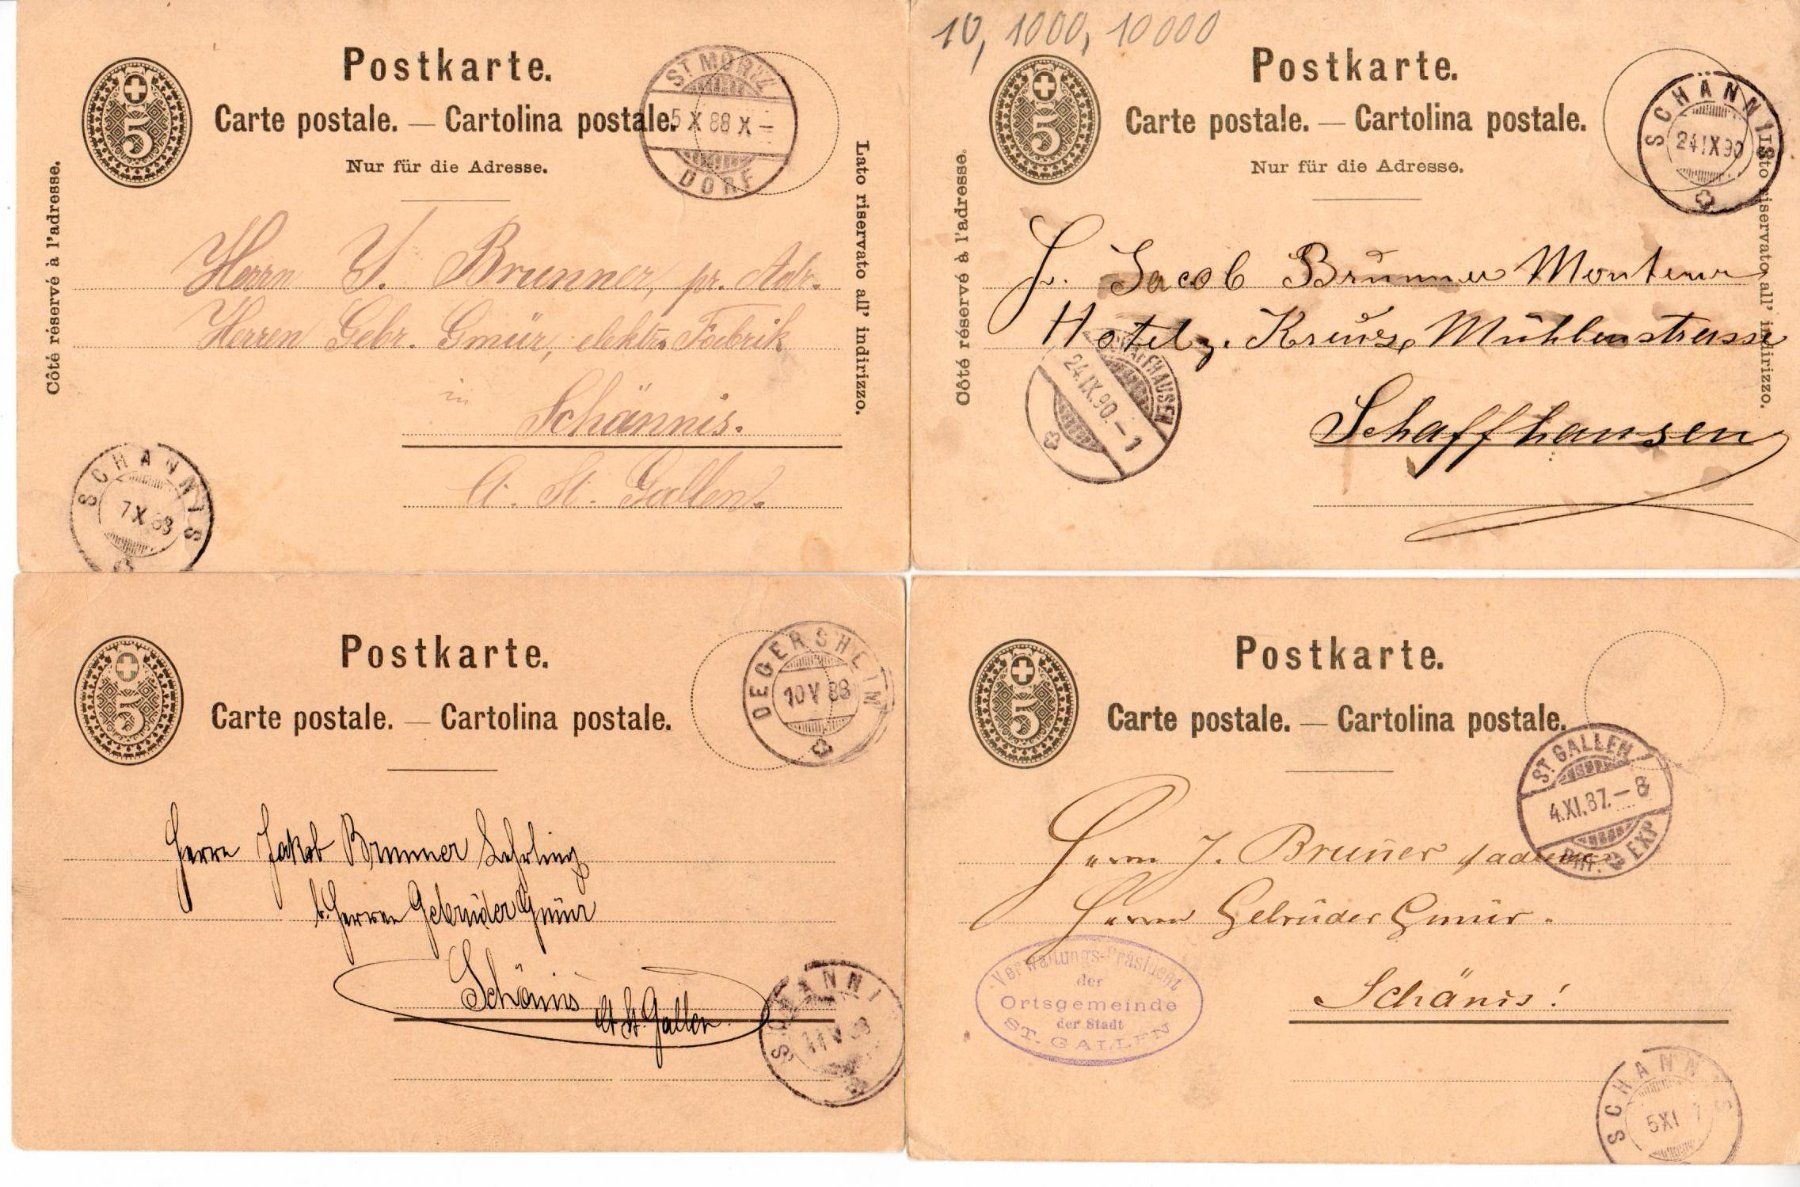 Postkarte.
Carte postale. — Cartolina postale.
Nur für die Adresse.
5
ST MORITZ
5 X 88 X –
DORF
Côté réservé à l'adresse.
Lato riservato all' indirizzo.
Herrn J. Brunner, pr. Adr.
Herren Gebr. Gmür, elektr. Fabrik
in
Schännis.
Ct. St. Gallen.
SCHÄNNIS
7 X 88
10, 1000, 10000
Postkarte.
Carte postale. — Cartolina postale.
Nur für die Adresse.
5
SCHÄNNIS
24 IX 90
Côté réservé à l'adresse.
Lato riservato all' indirizzo.
H. Jacob Brunner Monteur
Hotel z. Kreuz, Mühlenstrasse
Schaffhausen
SCHAFFHAUSEN
24.IX.90.–1
Postkarte.
Carte postale. — Cartolina postale.
5
DEGERSHEIM
10 V 88
Herrn Jakob Brunner Lehrling
b. Herren Gebrüder Gmür
Schänis
Ct. St. Gallen
SCHÄNNIS
11 V 88
Postkarte.
Carte postale. — Cartolina postale.
5
ST GALLEN
4.XI.87.–8
BRF. EXP
Herrn J. Bruner
Herrn Gebrüder Gmür.
Schänis!
Verwaltungs-Präsident
der
Ortsgemeinde
der Stadt
ST. GALLEN
SCHÄNNIS
5 XI 7